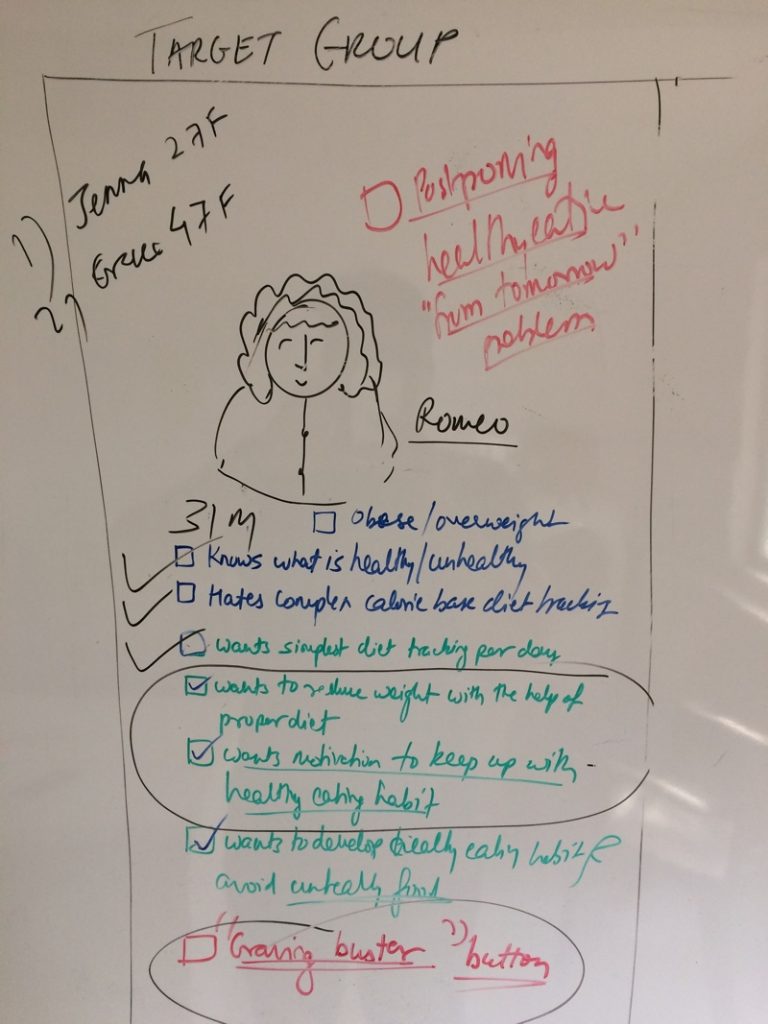 TARGET GROUP
1) Jenna 27F
2) 47F
Postponing
healthy eating
"from tomorrow"
problem
Romeo
31 M
Obese/overweight
Knows what is healthy/unhealthy
Hates complex calorie base diet tracking
wants simplest diet tracking per day
wants to reduce weight with the help of
proper diet
wants motivation to keep up with
healthy eating habit
wants to develop healthy eating habit &
avoid unhealthy food
"Craving buster" button